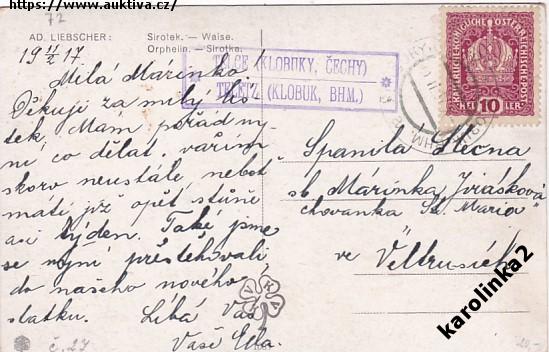 https://www.auktiva.cz/
72
AD. LIEBSCHER:
Sirotek. — Waise.
Orphelin. — Sirotka.
19 11/2 17
TELCE (KLOBUKY, ČECHY)
TELETZ (KLOBUK, BHM.)
KAISERLICHE KÖNIGLICHE ÖSTERREICHISCHE POST
HELLER
10
Milá Mařinko!
Děkuji za milý lís
tek. Mám pořád ny
ní co dělat, vařím
skoro neustále nebot
máti již opět stůně
asi týden. Také jsme
se nyní přestěhovali
do našeho nového
statku. Líbá Vás
Vaše Ella.
Spanilá Slečna
sl. Mařinka Jirásková
chovanka „St. Maria"
ve Veltrusích
č. 27
20,-
karolinka2